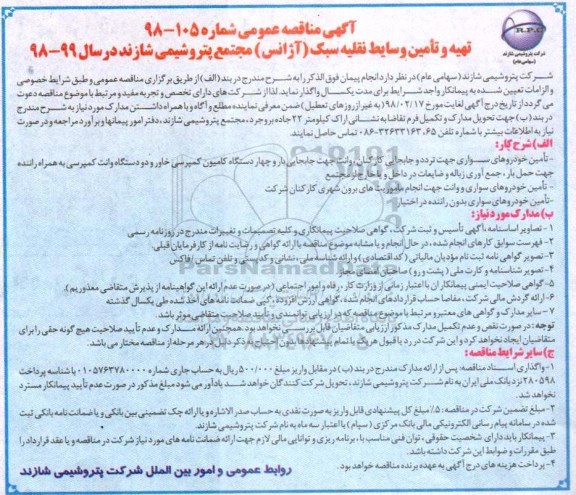 R.P.C
شرکت پتروشیمی شازند
(سهامی عام)
آگهی مناقصه عمومی شماره ۱۰۵-۹۸
تهیه و تأمین وسایط نقلیه سبک (آژانس) مجتمع پتروشیمی شازند در سال ۹۹-۹۸
شرکت پتروشیمی شازند (سهامی عام) در نظر دارد انجام پیمان فوق الذکر را به شرح مندرج در بند (الف) از طریق برگزاری مناقصه عمومی و طبق شرایط خصوصی
و الزامات تعیین شده به پیمانکار واجد شرایط برای مدت یکسال واگذار نماید. لذا از شرکت های دارای تخصص و تجربه مفید و مرتبط با موضوع مناقصه دعوت
می گردد از تاریخ درج آگهی لغایت مورخ ۹۸/۰۲/۱۷ (به غیر از روزهای تعطیل) ضمن معرفی نماینده مطلع و آگاه و با همراه داشتن مدارک مورد نیاز به شرح مندرج
در بند (ب) جهت تحویل مدارک و تکمیل فرم تقاضا به نشانی اراک کیلومتر ۲۲ جاده بروجرد، مجتمع پتروشیمی شازند، دفتر امور پیمانها و برآورد مراجعه و در صورت
نیاز به اطلاعات بیشتر با شماره تلفن ۶۵، ۳۲۶۳۳۱۶۳-۰۸۶ تماس حاصل نمایند.
الف) شرح کار:
- تأمین خودروهای سواری جهت تردد و جابجایی کارکنان، وانت جهت جابجایی بار و چهار دستگاه کامیون کمپرسی خاور و دو دستگاه وانت کمپرسی به همراه راننده
جهت حمل بار، جمع آوری زباله و ضایعات در داخل و یا خارج از مجتمع
- تأمین خودروهای سواری و وانت جهت انجام ماموریت های برون شهری کارکنان شرکت
- تأمین خودروهای سواری بدون راننده در اختیار
ب) مدارک مورد نیاز:
۱- تصاویر اساسنامه، آگهی تأسیس و ثبت شرکت، گواهی صلاحیت پیمانکاری و کلیه تصمیمات و تغییرات مندرج در روزنامه رسمی
۲- فهرست سوابق کارهای انجام شده، در حال انجام و یا مشابه موضوع مناقصه با ارائه گواهی و رضایت نامه از کارفرمایان قبلی.
۳- تصویر گواهی نامه ثبت نام مؤدیان مالیاتی (کد اقتصادی) و ارائه شناسه ملی، نشانی و کد پستی و تلفن تماس / فاکس
۴- تصویر شناسنامه و کارت ملی (پشت و رو) صاحبان امضای مجاز
۵- گواهی صلاحیت ایمنی پیمانکاران با اعتبار زمانی از وزارت کار، رفاه و امور اجتماعی (در صورت عدم ارائه این گواهینامه از پذیرش متقاضی معذوریم).
۶- ارائه گردش مالی شرکت، مفاصا حساب قراردادهای انجام شده، گواهی ارزش افزوده، کپی ضمانت نامه های أخذ شده طی یکسال گذشته
۷- سایر مدارک و گواهی های معتبر و مرتبط با موضوع مناقصه که در ارزیابی توانمندی و تأیید صلاحیت متقاضی موثر باشد.
توجه: در صورت نقص و عدم تکمیل مدارک مذکور ارزیابی متقاضیان قابل بررسی نخواهد بود. همچنین ارائه مدارک و عدم تأیید صلاحیت هیچ گونه حقی را برای
متقاضیان ایجاد نخواهد کرد و این شرکت در رد یا قبول هر یک یا تمام پیشنهادها بدون احتیاج به ذکر دلیل در هر مرحله از مناقصه مختار می باشد.
ج) سایر شرایط مناقصه:
۱- واگذاری اسناد مناقصه: پس از ارائه مدارک مندرج در بند (ب) در مقابل واریز مبلغ ۵۰۰/۰۰۰ ریال به حساب جاری شماره ۰۱۰۵۷۶۳۷۸۰۰۰۰ با شناسه پرداخت
۲۸۰۵۹۸ نزد بانک ملی ایران به نام شرکت پتروشیمی شازند، تحویل شرکت کنندگان خواهد شد. یادآور می شود مبلغ مذکور در صورت عدم تأیید پیمانکار مسترد
نخواهد شد.
۲- مبلغ تضمین شرکت در مناقصه: ۵٪ مبلغ کل پیشنهادی قابل واریز به صورت نقدی به حساب صدر الاشاره و یا ارائه چک تضمینی بین بانکی و یا ضمانت نامه بانکی ثبت
شده در سامانه پیام رسانی الکترونیکی مالی بانک مرکزی (سپام) با اعتبار سه ماه به نام شرکت پتروشیمی شازند.
۳- پیمانکار باید دارای شخصیت حقوقی، توان فنی مناسب با، برنامه ریزی و توانایی مالی لازم جهت ارائه ضمانت نامه های مورد نیاز شرکت در مناقصه و یا عقد قرارداد را
طبق مقررات و ضوابط این شرکت داشته باشد.
۴- پرداخت هزینه های درج آگهی به عهده برنده مناقصه خواهد بود.
روابط عمومی و امور بین الملل شرکت پتروشیمی شازند
ParsNamadData